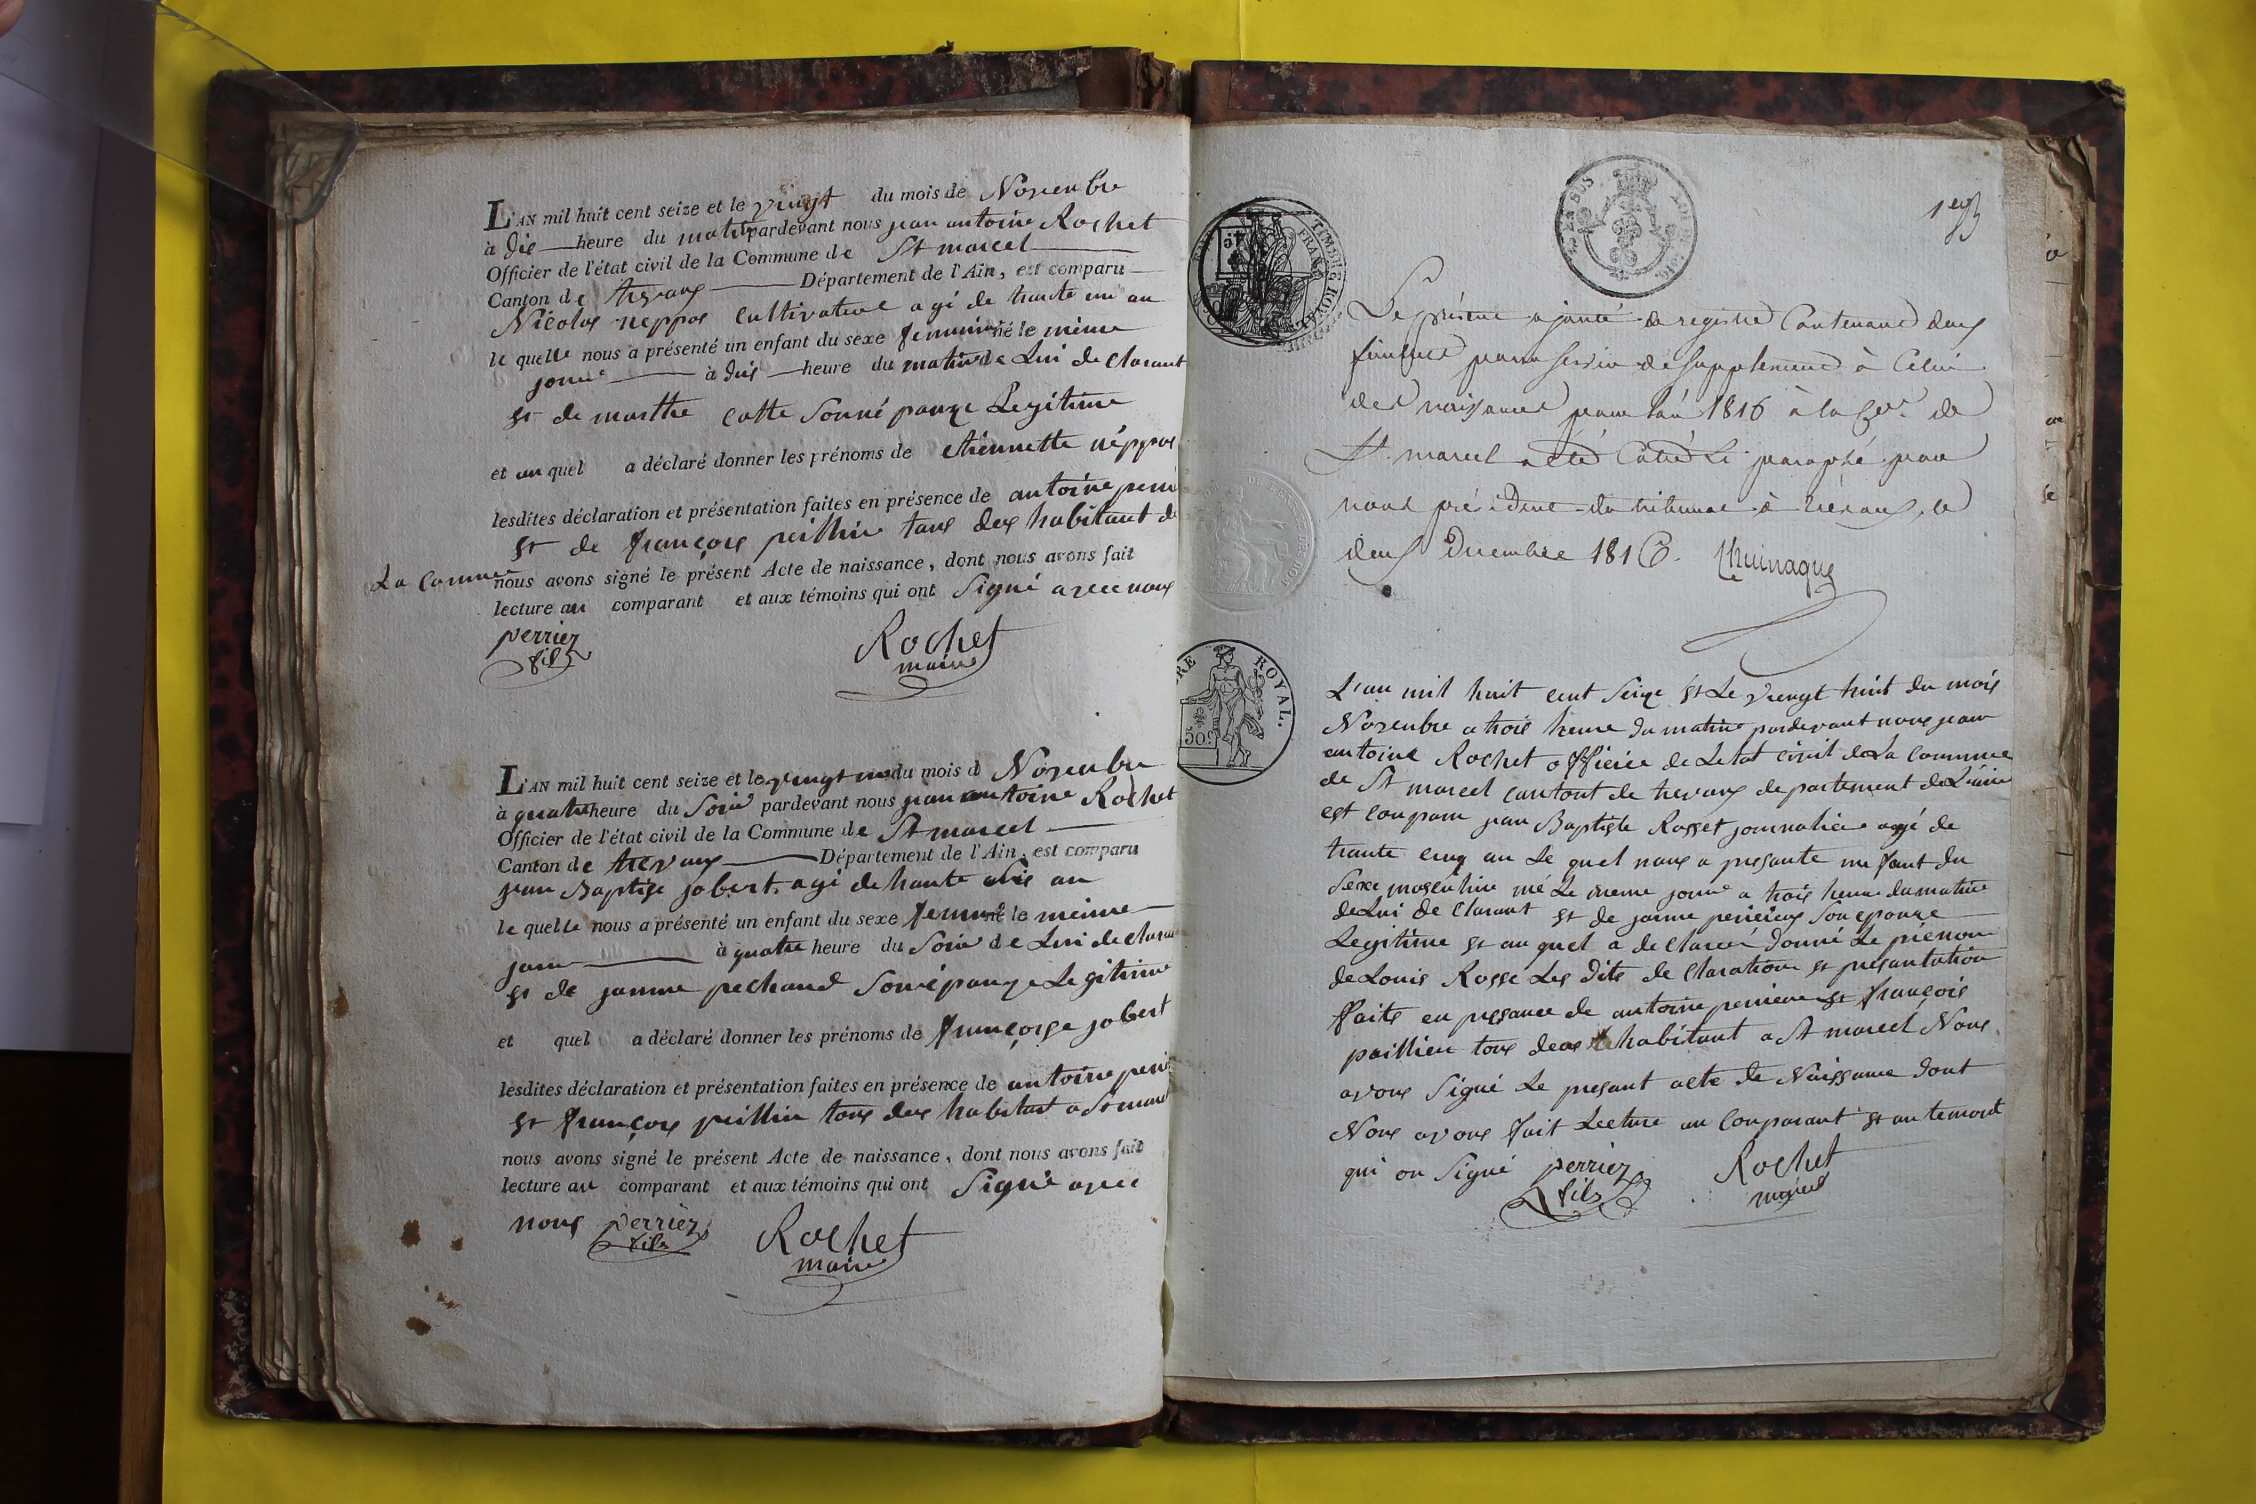 L'AN mil huit cent seize et le vingt du mois de Novenbre
à dis heure du matin pardevant nous jean antoine Rochet
Officier de l'état civil de la Commune de St marcel
Canton de trevoux Département de l'Ain, est comparu
Nicolas neppos cultivateur agé de trante un an
le quelle nous a présenté un enfant du sexe feminin né le mème
jour à dis heure du matin de Lui de clarant
et de marthe catte Son népouze Legitime
et au quel a déclaré donner les prénoms de etiennette néppos
lesdites déclaration et présentation faites en présence de antoine peri
et de françois peillieu tous deux habitant de
La Commune
nous avons signé le présent Acte de naissance, dont nous avons fait
lecture au comparant et aux témoins qui ont Signé avec nous
perrier
fils
Rochet
maire
L'AN mil huit cent seize et le vingt un du mois d Novenbre
à quatre heure du Soir pardevant nous jean antoine Rochet
Officier de l'état civil de la Commune de St marcel
Canton de trevoux Département de l'Ain, est comparu
jean Baptise jobert. agé de trante an
le quelle nous a présenté un enfant du sexe feminé né le meinne
jour à quatre heure du Soir de Lui de claran
et de janne pechaud Son épouze Legitime
et quel a déclaré donner les prénoms de françoise jobert
lesdites déclaration et présentation faites en présence de antoine peri
et françois peillieu tous deux habitant a St marcel
nous avons signé le présent Acte de naissance, dont nous avons fait
lecture au comparant et aux témoins qui ont Signé avec
nous perrier
fils
Rochet
maire
TIMBRE ROYAL
FRANCE
Le présent ajouté de registre Contenant deux
feuillet pour Servir de Supplement à Celui
des naissances pour l'an 1816 à la Cne. de
St. marcel a été Coté & paraphé par
nous président du tribunal à trévoux, le
deux Decembre 1816. Thuinaque
RE ROYAL.
50c
L'an mil huit cent Seize et Le vingt huit du mois
Novenbre a trois heure du matin pardevant nous jean
antoine Rochet officier de Letat civil de La commune
de St marcel cantont de trevoux departement de L'ain
est conparu jean Baptiste Rosset journalier agé de
trante cinq an Le quel nous a presante un fant du
Sexe masculin né Le meme jour a trois heure du matin
de Lui de clarant et de janne perieux Son epouze
Legitime et au quel a de claré donné Le prénom
de Louis Rosse Les dits de claration et presantation
ffaite en presance de antoine perrier et françois
peillieu tous deux habitant a St marcel Nous
avons Signé Le presant acte de Naissance dont
Nous avons ffait Lecture au conparant et au temont
qui on Signé perrier
fils
Rochet
maire